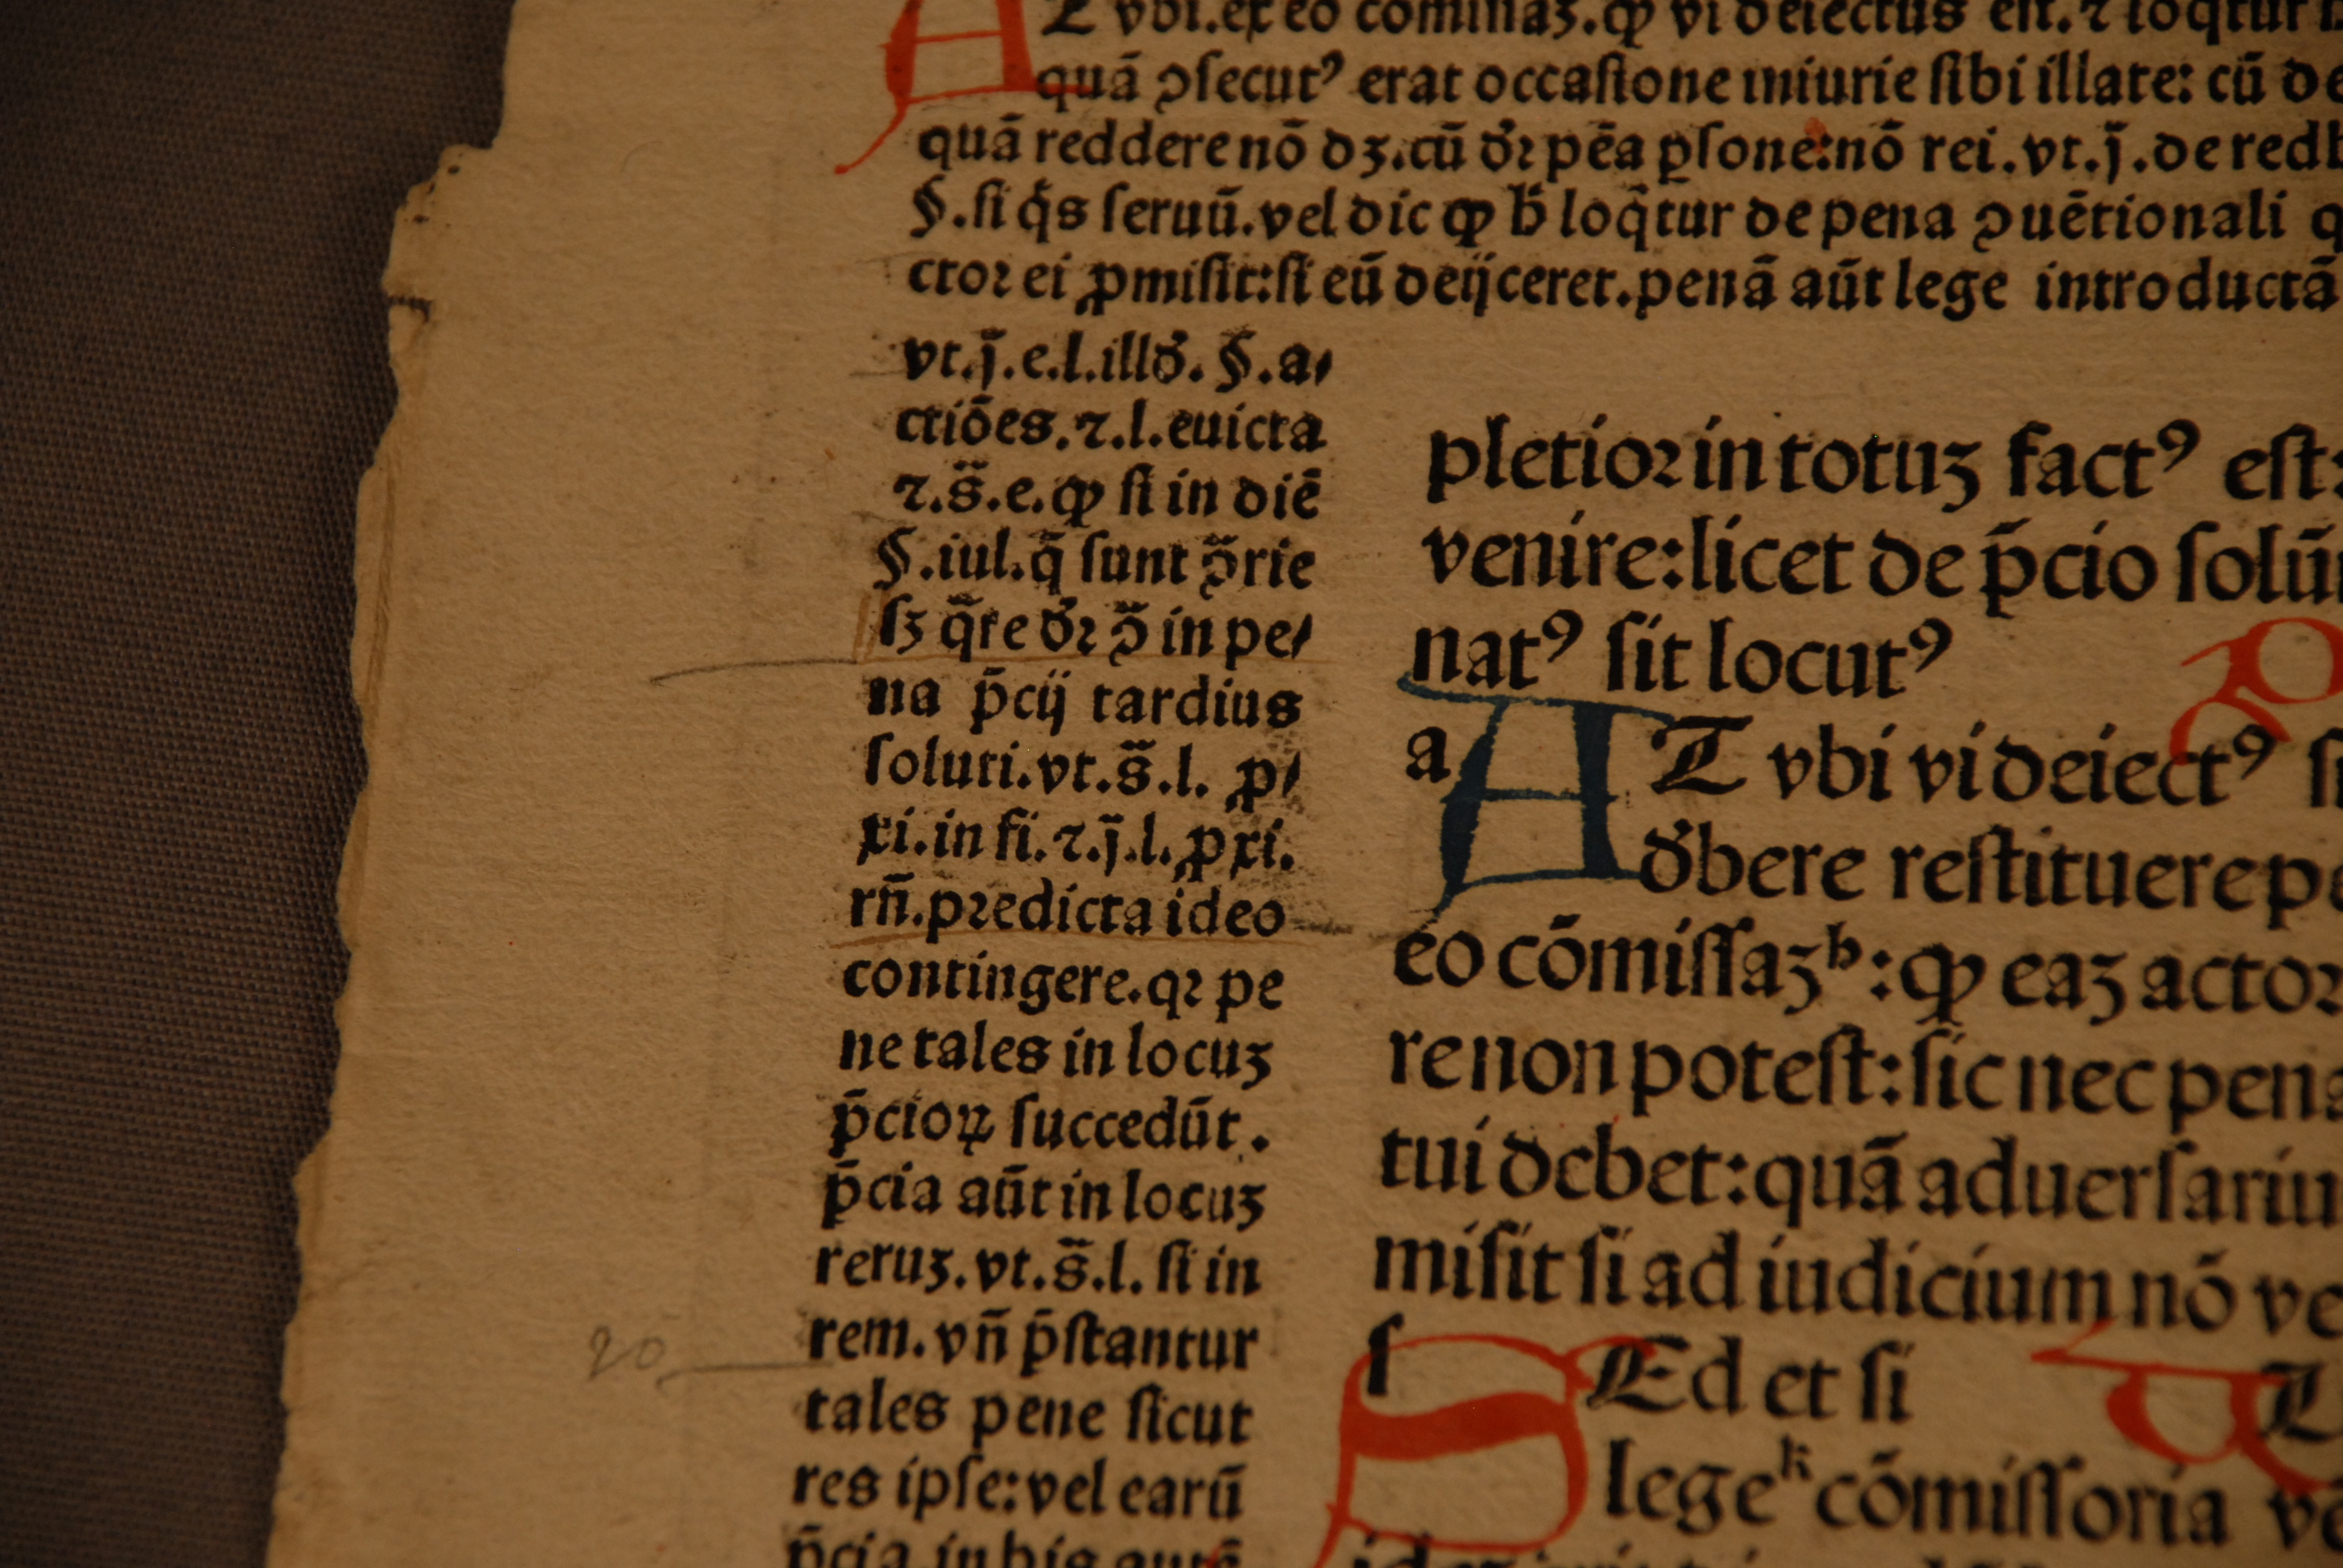 AT vbi.ex eo cōmiſſaꝫ.ꝙ vi deiectus eſt.⁊ loqtur
quā ꝯſecutꝰ erat occaſione iniurie ſibi illate: cū de
quā reddere nō dꝫ.cū dr̄ pēa ꝑſone:nō rei.vt.j̄.de redh
§.ſi q̄s ſeruū.vel dic ꝙ h̄ loq̄tur de pena ꝯuētionali q
ctoꝛ ei ꝓmiſit:ſi eū deijceret.penā aūt lege introductā
vt.j̄.e.l.illd̓. §.a/
ctiōes.⁊.l.euicta
⁊.s̄.e.ꝙ ſi in diē
§.iul.q̄ ſunt ꝯ̄rie
ſꝫ q̄re dr̄ ꝯ̄ in pe/
na p̄cij tardius
ſoluti.vt.s̄.l. ꝓ/
xi.in fi.⁊.j̄.l.ꝓxi.
rn̄.pꝛedicta ideo
contingere.qꝛ pe
ne tales in locuꝫ
p̄cioꝝ ſuccedūt.
p̄cia aūt in locuꝫ
reruꝫ.vt.s̄.l. ſi in
rem.vn̄ p̄ſtantur
tales pene ſicut
res ipſe:vel earū
p̄cia.in his autē
20
pletioꝛ in totuꝫ factꝰ eſt:
venire:licet de p̄cio ſolū
natꝰ ſit locutꝰ
a AT vbi vi deiectꝰ ſi
d̓bere reſtituere pe
eo cōmiſſaꝫ h:ꝙ eaꝫ actoꝛ
re non poteſt:ſic nec pena
tui debet:quā aduerſariu
miſit ſi ad iudicium nō ve
ſ SEd et ſi
lege k cōmiſſoria